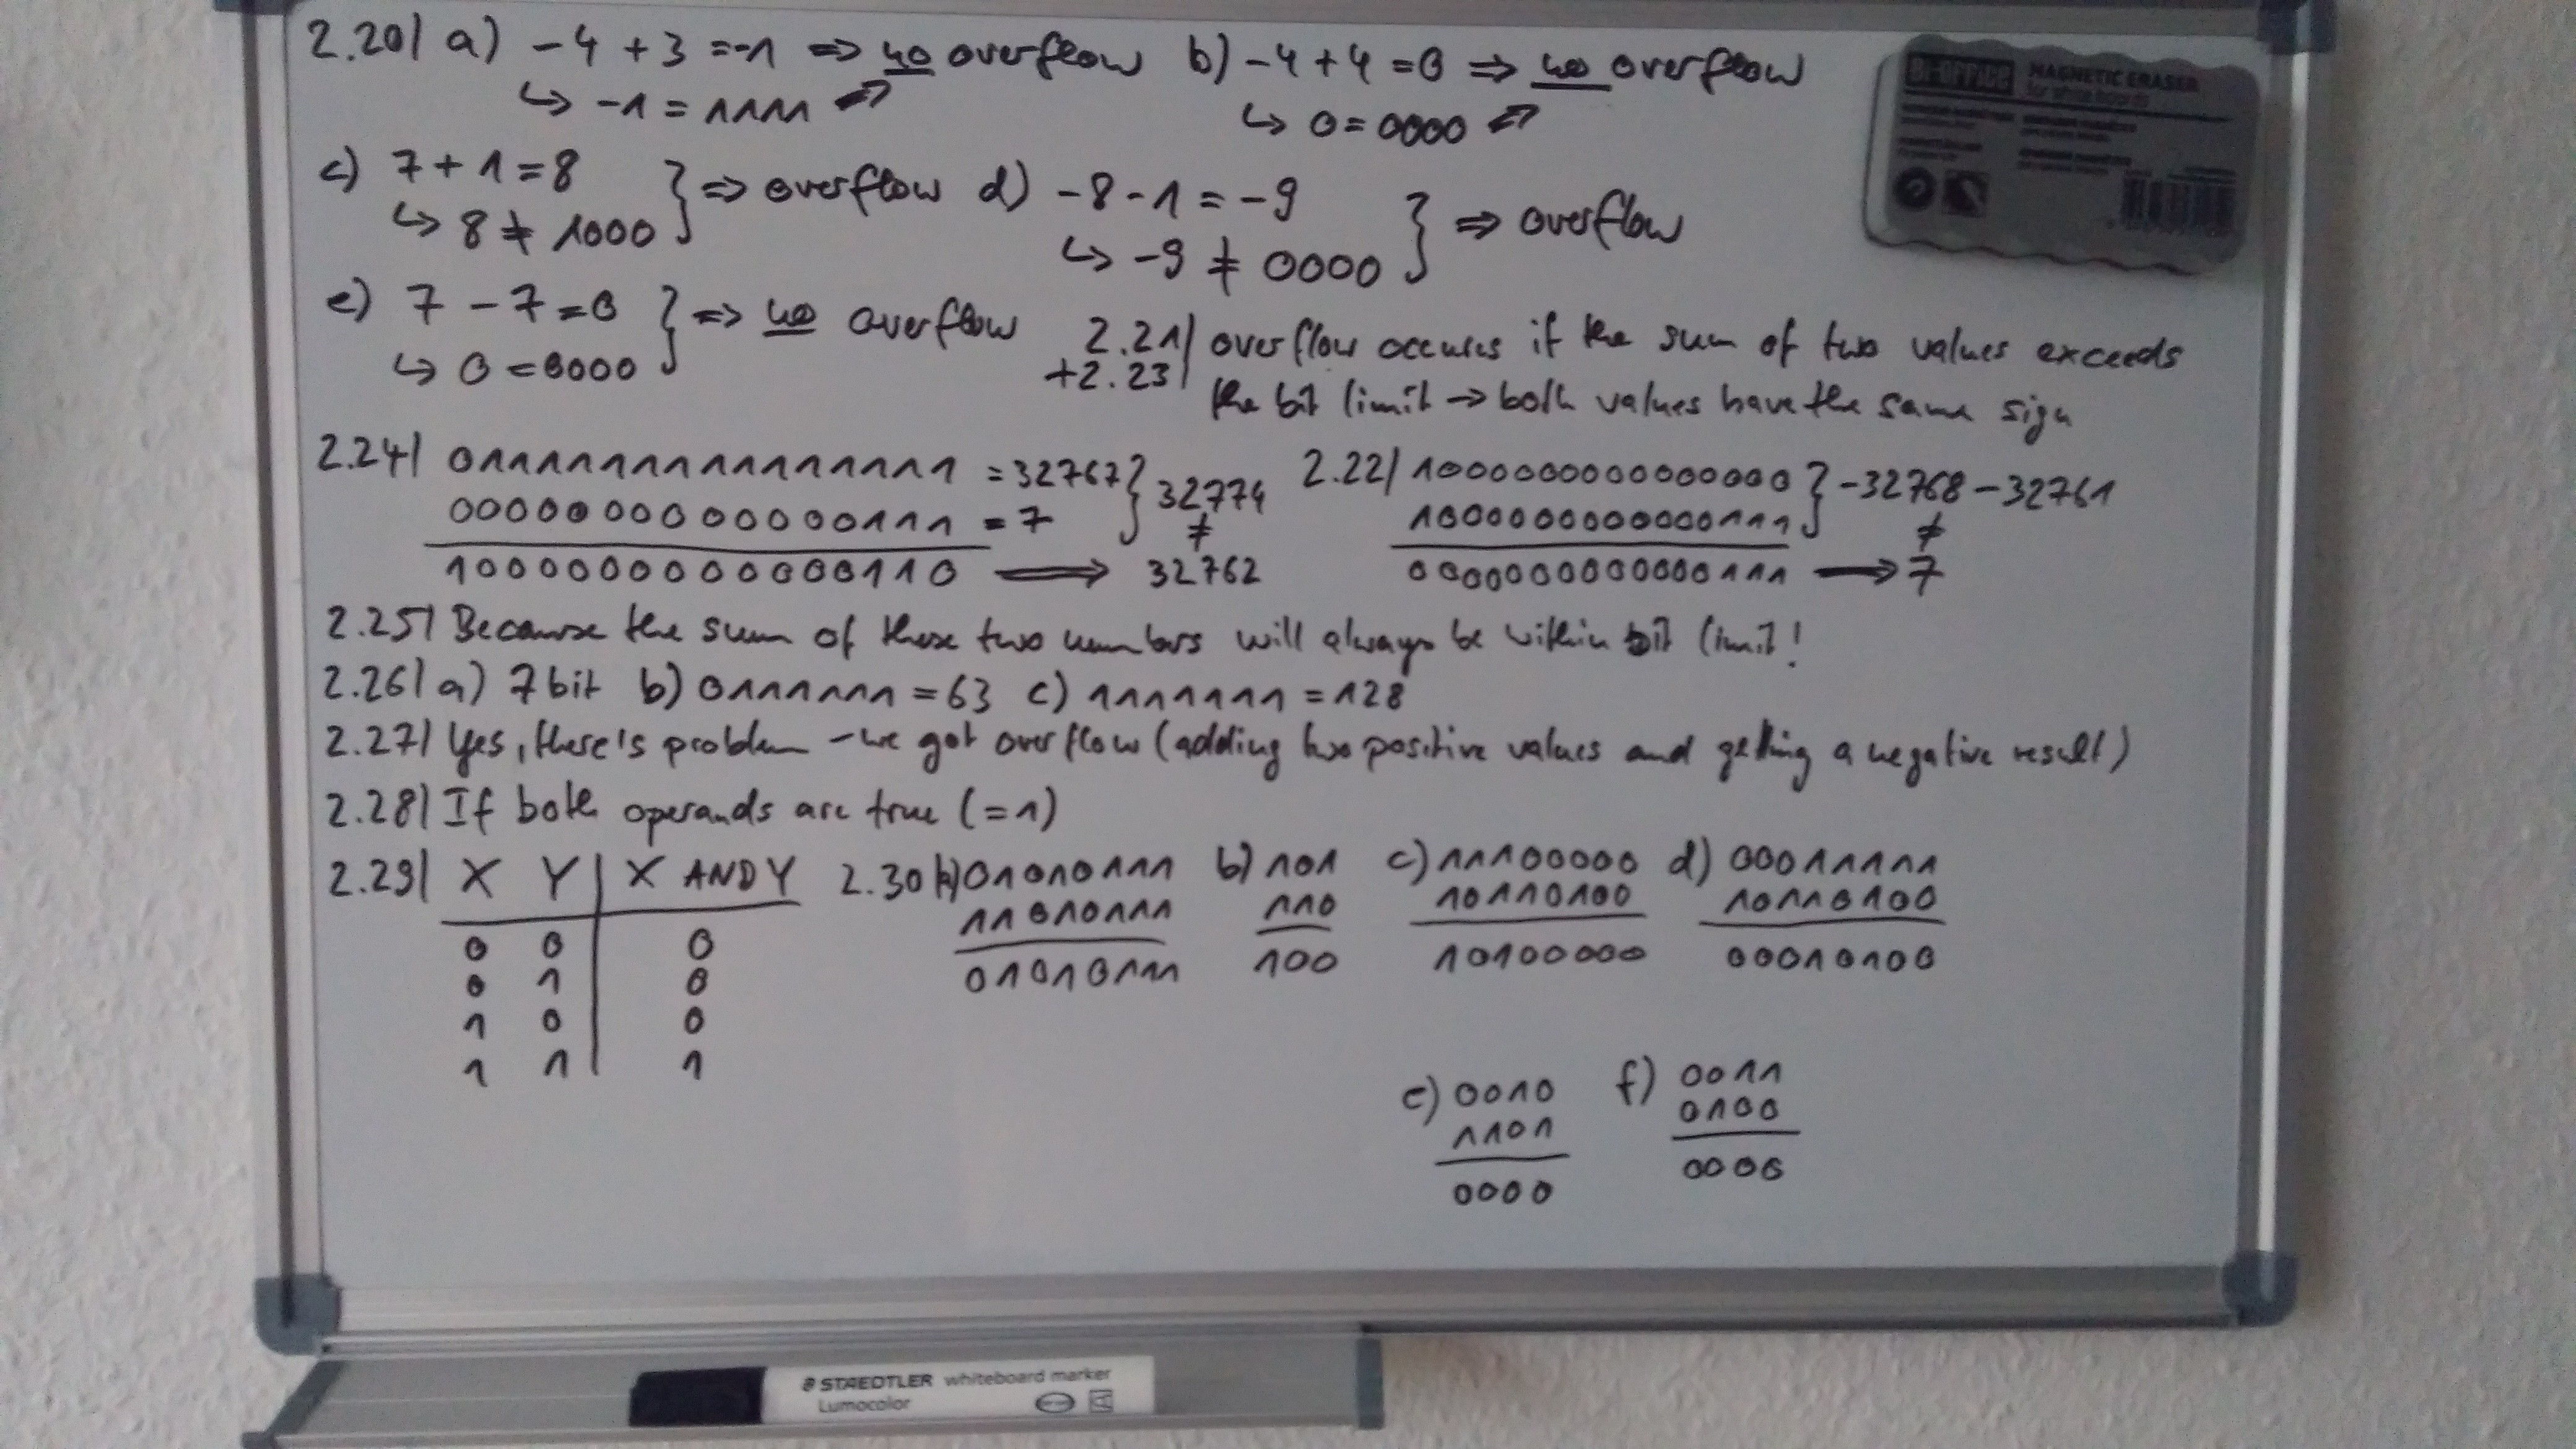 2.20| a) -4 + 3 = -1 => no overflow b) -4 + 4 = 0 => no overflow
↳ -1 = 1111 ↳ 0 = 0000
c) 7 + 1 = 8 } => overflow d) -8 - 1 = -9 } => overflow
↳ 8 ≠ 1000 ↳ -9 ≠ 0000
e) 7 - 7 = 0 } => no overflow
↳ 0 = 0000
2.21| overflow occures if the sum of two values exceeds
+2.23| the bit limit -> both values have the same sign
2.24| 0111111111111111 = 32767 } 32774
0000000000000111 = 7 ≠
1000000000000110 => 32762
2.22| 1000000000000000 } -32768 - 32761
1000000000000111 ≠
0000000000000111 -> 7
2.25| Because the sum of these two numbers will always be within bit limit!
2.26| a) 7 bit b) 0111111 = 63 c) 1111111 = 128
2.27| Yes, there's problem - we got overflow (adding two positive values and getting a negative result)
2.28| If both operands are true (=1)
2.29| X Y | X AND Y
0 0 | 0
0 1 | 0
1 0 | 0
1 1 | 1
2.30 a) 01010111 b) 101 c) 11100000 d) 00011111
11010111 110 10110100 10110100
01010111 100 10100000 00010100
e) 0010 f) 0011
1101 0100
0000 0000
BI-OFFICE MAGNETIC ERASER
for whiteboards
STAEDTLER whiteboard marker
Lumocolor